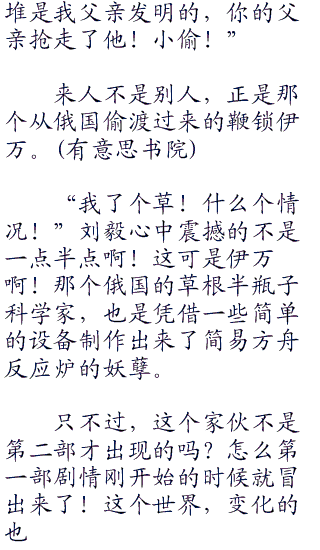 堆是我父亲发明的，你的父
亲抢走了他！小偷！”
来人不是别人，正是那
个从俄国偷渡过来的鞭锁伊
万。(有意思书院)
“我了个草！什么个情
况！”刘毅心中震撼的不是
一点半点啊！这可是伊万
啊！那个俄国的草根半瓶子
科学家，也是凭借一些简单
的设备制作出来了简易方舟
反应炉的妖孽。
只不过，这个家伙不是
第二部才出现的吗？怎么第
一部剧情刚开始的时候就冒
出来了！这个世界，变化的
也